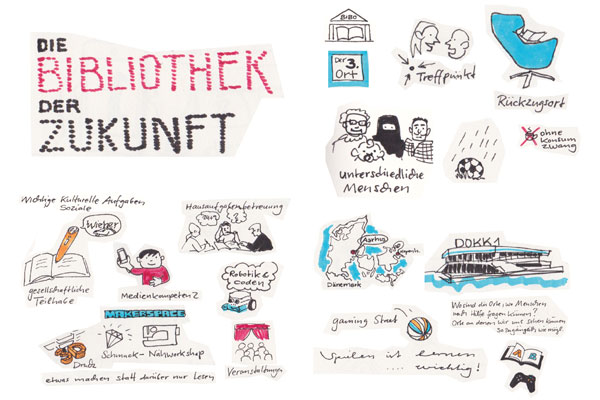 DIE
BIBLIOTHEK
DER
ZUKUNFT
BIBO
Der 3.
Ort
Treffpunkt
Rückzugsort
unterschiedliche
Menschen
ohne
Konsum
zwang
Wichtige Kulturelle Aufgaben
Soziale
gesellschaftliche
Teilhabe
Medienkompetenz
Hausaufgabenbetreuung
Robotik &
Coden
MAKERSPACE
Schmuck-Nähworkshop
etwas machen statt darüber nur lesen
Veranstaltungen
Aarhus
Dänemark
DOKK1
gaming Street
Wo sind die Orte, wo Menschen
nach Hilfe fragen können?
Orte an denen wir uns sehen können
so zugänglich wie mögl.
Spielen ist lernen
.... wichtig!